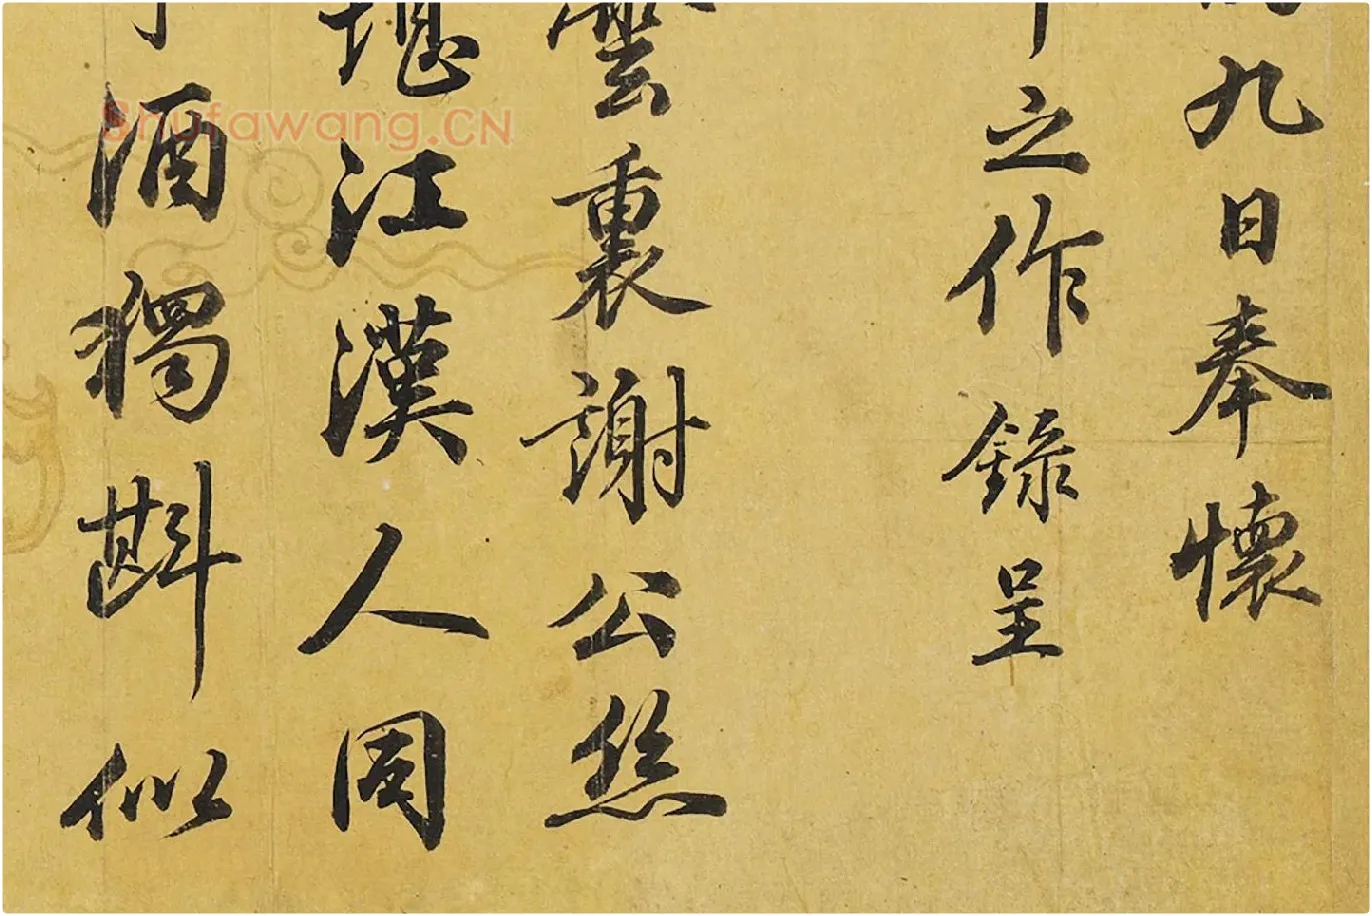 九日奉懷
之作錄呈
雲裏謝公絲
堪江漢人同
酒獨斟似
Shufawang.CN